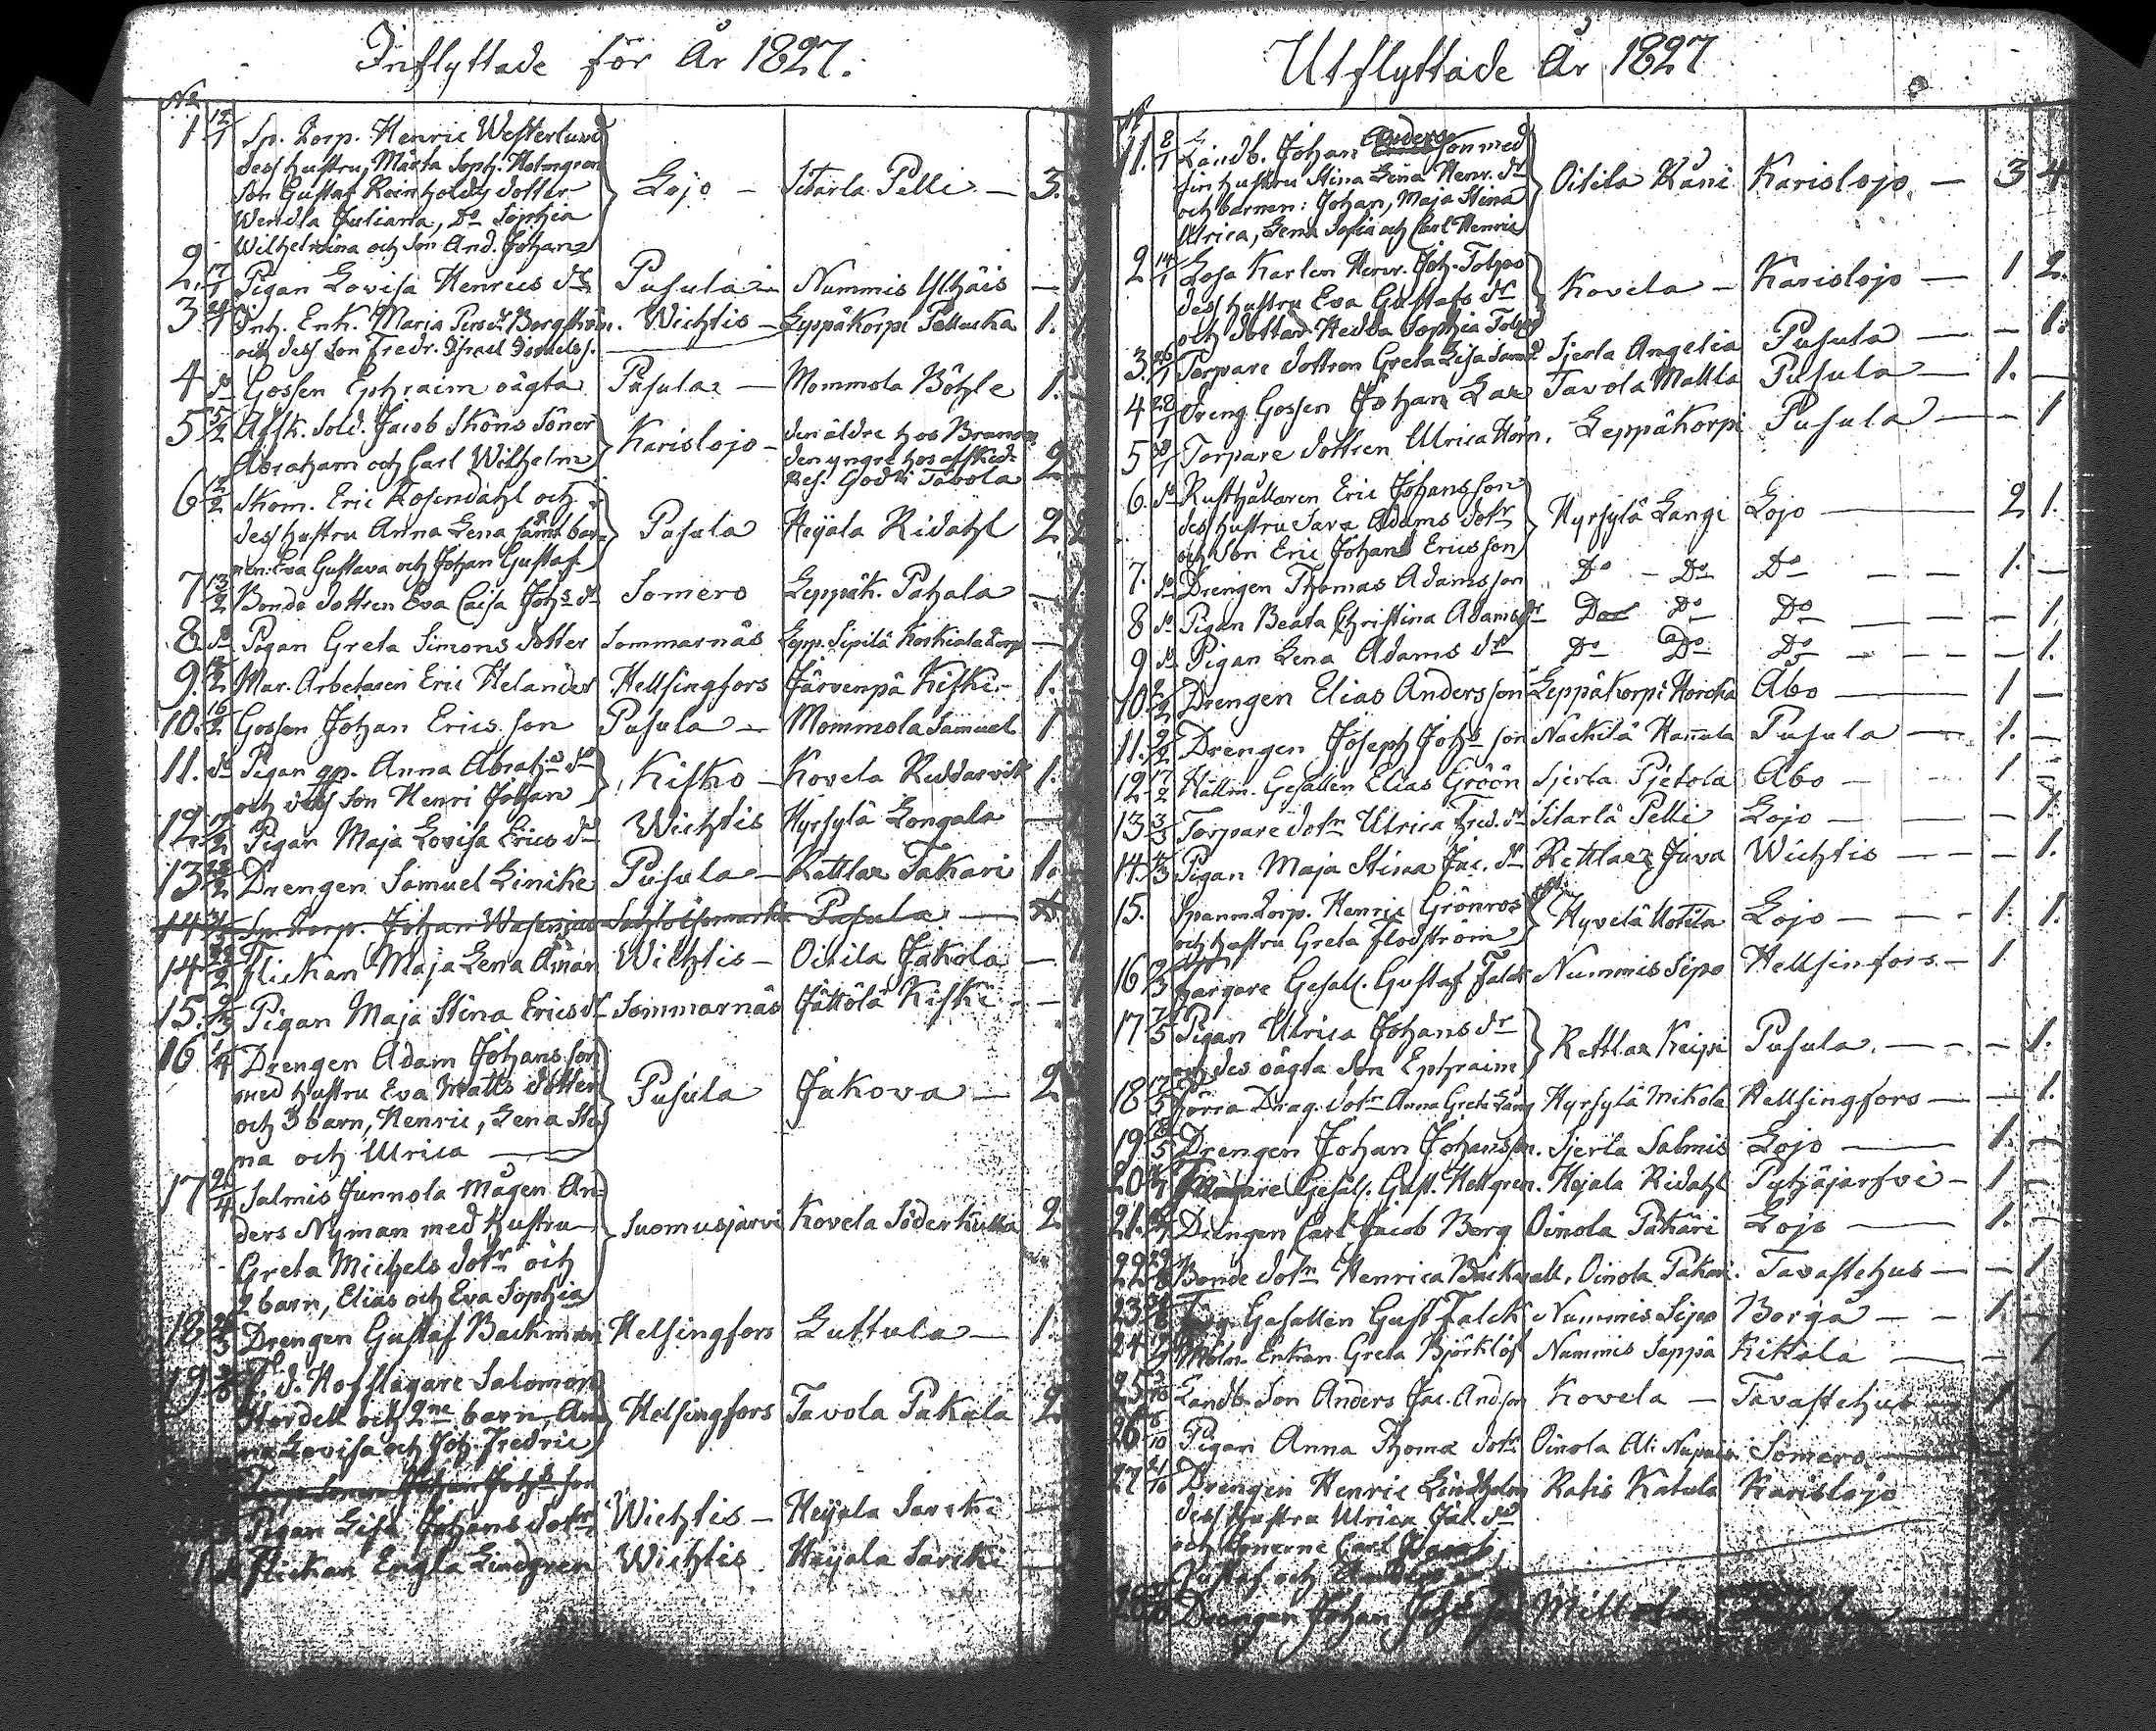 Inflyttade för År 1827.
No
1 12/1 Sp. Torp. Henric Westerlund
dess hustru Märta Soph. Holmgren
Son Gustaf Reinhold, dotter
Wendla Juliana, Do Sophia
Wilhelmina och son And. Johan
Lojo — Sitarla Pelli — 3.
2. 17/1 Pigan Lovisa Henrics dr Pusula — Nummis Ylhäis — 1
3 Inh. Enk. Maria Bergström. Wichtis — Leppäkorpi 1.
och dess Son Fredr. Israel
4 do Gossen Ephraim oägta Pusula — Mommola Böhle 1.
5 5/2 Afsk. Sold. Jacob Sköns Söner
Abraham och Carl Wilhelm
Karislojo — den äldre hos
den yngre hos afsked.
Tavola 2
6 12/2 Skom. Eric Rosendahl och
dess hustru Anna Lena samt bar-
nen: Eva Gustava och Johan Gustaf.
Pusula Heijala Ridahl 2 2
7 13/2 Bonde dottren Eva Caisa Johs dr Somero Leppäk. Pahala —
8 do Pigan Greta Simons dotter Sommarnäs Lepp. Sipilä Torp —
9. Mur. Arbetaren Eric Helander Helsingfors Järvenpä Kiski 1.
10. 16/2 Gossen Johan Erics son Pusula — Mommola Samuel 1
11. do Pigan Anna Abrahs dr
och dess Son Henri Johan
Kisko — Kovela Reddarvik 1.
12 17/2 Pigan Maja Lovisa Erics dr Wichtis Hyrsylä Longala —
13 Drengen Samuel Linike Pusula — Rettlax Takari 1.
14 Sp. Torp. Johan Pusula —
14 Flickan Maja Lena Wichtis — Oitila Jakola —
15. Pigan Maja Stina Erics dr Sommarnäs Jättölä Kiski —
16 1/4 Drengen Adam Johansson
med hustru Eva Matts dotter
och 3 barn, Henric, Lena Sti-
na och Ulrica —
Pusula Jakova — 2
17 2/4 Salmis Junnola Mågen An-
ders Nyman med hustru
Greta Michels dotr och
2 barn, Elias och Eva Sophia
Suomusjärvi Kovela Söderkulla 2
18 Drengen Gustaf Backman Helsingfors Luttula — 1.
19 F. d. Hofslagare Salomon
och 2ne barn An-
na Lovisa och Joh. Fredric
Helsingfors Tavola Pakula 2.
Johan Johs son
Pigan Lisa Johans dotr Wichtis — Heijala
Flickan Engla Lindgren Wichtis Heijala
Utflyttade År 1827
No
1. 8/1 Landb. Johan Anderson med
sin hustru Stina Lena Henr. dr
och barnen: Johan, Maja Stina
Ulrica, Lena Sofia och Carl Henric
Oitila Kåni Karislojo. — 3 4.
2 14/1 Losa Karlen Henr. Joh. Tolpo
dess hustru Eva Gustafs dr
och dotter Hedda Sophia
Kovela — Karislojo — 1 2.
3. 26/1 Torpare dottren Greta Lisa Sjerla Angelia Pusula — — 1.
4 28/1 Dreng Gossen Johan Lax Tavola Mattla Pusula — 1. —
5 Torpare dottren Ulrica Leppäkorpi Pusula — — 1
6. do Rusthållaren Eric Johansson
dess hustru Sara Adams dotr
och Son Eric Johan Ericsson
Hyrsylä Langi Lojo — 2 1.
7. do Drengen Thomas Adamsson Do — Do Do — — 1. —
8 do Pigan Beata Christina Adams dr Do Do Do — — 1.
9 do Pigan Lena Adams dr Do Do Do — — — 1.
10. Drengen Elias Andersson Leppäkorpi Åbo — 1 —
11. 9/2 Drengen Joseph Johs son Nackilä Hannula Pusula — 1. —
12 17/2 Hattm. Gesällen Elias Gröön Sjerla Pjetola Åbo — 1 —
13 3/3 Torpare dotrn Ulrica Fred. dr Sitarla Pelli Lojo — — 1.
14. 4/3 Pigan Maja Stina Jac. dr Rettlax Juva Wichtis — — — 1.
15. Spanm. Torp. Henric Grönros
och hustru Greta Flodström
Hyvelä Uotila Lojo — — 1. 1.
16 Färgare Gesäll. Gustaf Falck Nummis Sipo Hellsinfors. — 1
17 7/5 Pigan Ulrica Johans dr
och des oägta Son Ephraim
Rettlax Keipi Pusula. — — 1.
18 17/5 Förra Drag. dotr Anna Greta Hyrsylä Mikola Hellsingfors — — 1.
19. Drengen Johan Johansson. Sjerla Salmis Lojo — 1. —
20 Gesäll. Gust. Hellgren. Heijala Ridahl Pyhäjärfvi — 1 —
21. Drengen Carl Jacob Berg Oinola Pakari Lojo — 1. —
22 Bonde dotrn Henrica Backvall. Oinola Pakari. Tavastehus — — 1
23 Gesällen Gust Falck Nummis Sipo Borgå — — 1.
24 Enkan Greta Björklöf Nummis Seppä Kikala — — 1
25 Landb. Son Anders Jac. Andson Kovela — Tavastehus — 1
26 Pigan Anna Thomæ dotr Oinola Ali Somero —
27 21/10 Drengen Henric Lindholm Ratis Katula Karislojo
dess hustru Ulrica Jac. dr
och Sönerne Carl
Gustaf och
Drengen Johan